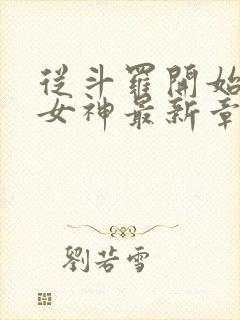 從斗羅開始
女神最新章
劉若雪